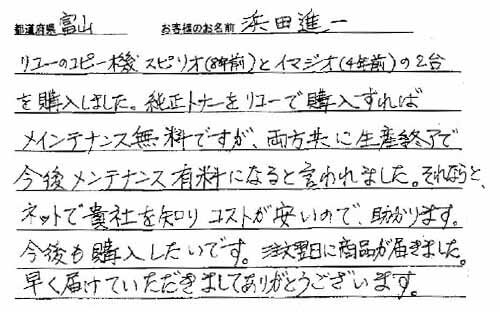 都道府県 富山 お客様のお名前 浜田進一
リコーのコピー機 スピリオ(8年前)とイマジオ(4年前)の2台
を購入しました。純正トナーをリコーで購入すれば
メインテナンス無料ですが、両方共に生産終了で
今後メンテナンス有料になると言われました。それならと、
ネットで貴社を知りコストが安いので、助かります。
今後も購入したいです。注文翌日に商品が届きました。
早く届けていただきましてありがとうございます。